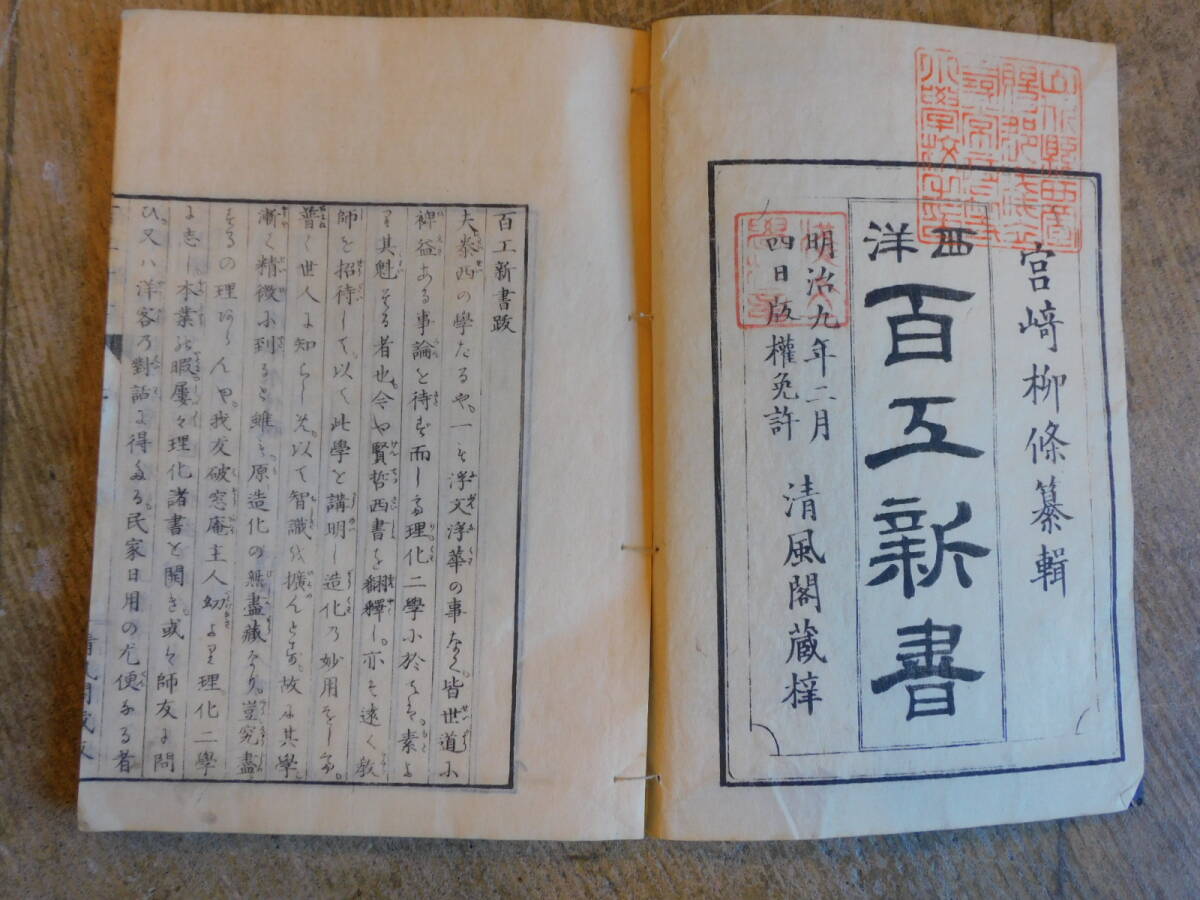 宮﨑柳條纂輯
西洋
百工新書
明治九年二月
四日版權免許
清風閣蔵梓
百工新書跋
夫泰西の學たるや。一も浮文浮華の事なく。皆世道に
裨益ある事論を待ず而して理化二學に於る。素よ
り其魁たる者也。今や賢哲西書を翻釋し。亦も遠く教
師を招待して。以て此學を講明し造化の妙用をして。
普く世人に知らしむ。以て智識を擴んとす。故に其學。
漸く精微に到ると雖も。原造化の無盡藏なり。豈究盡
するの理あらんや。我友破窓庵主人幼より理化二學
に志し。本業の暇屢々理化諸書を閲き。或は師友に問
ひ。又ハ洋客の對話に得たる。民家日用の尤便なる者